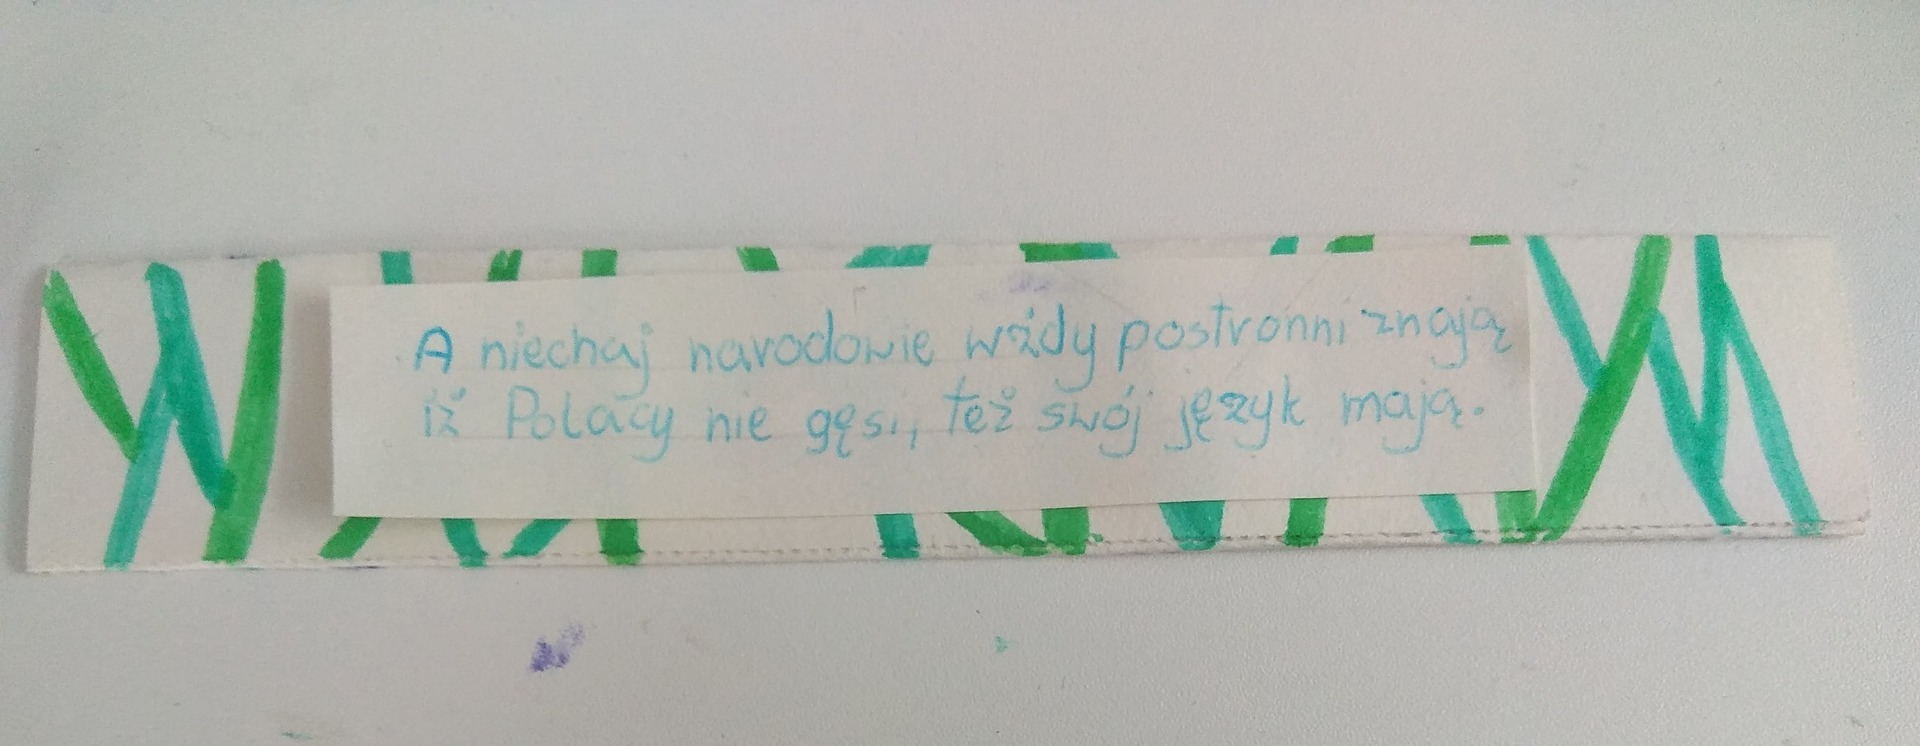 A niechaj narodowie wżdy postronni znają
iż Polacy nie gęsi, też swój język mają.